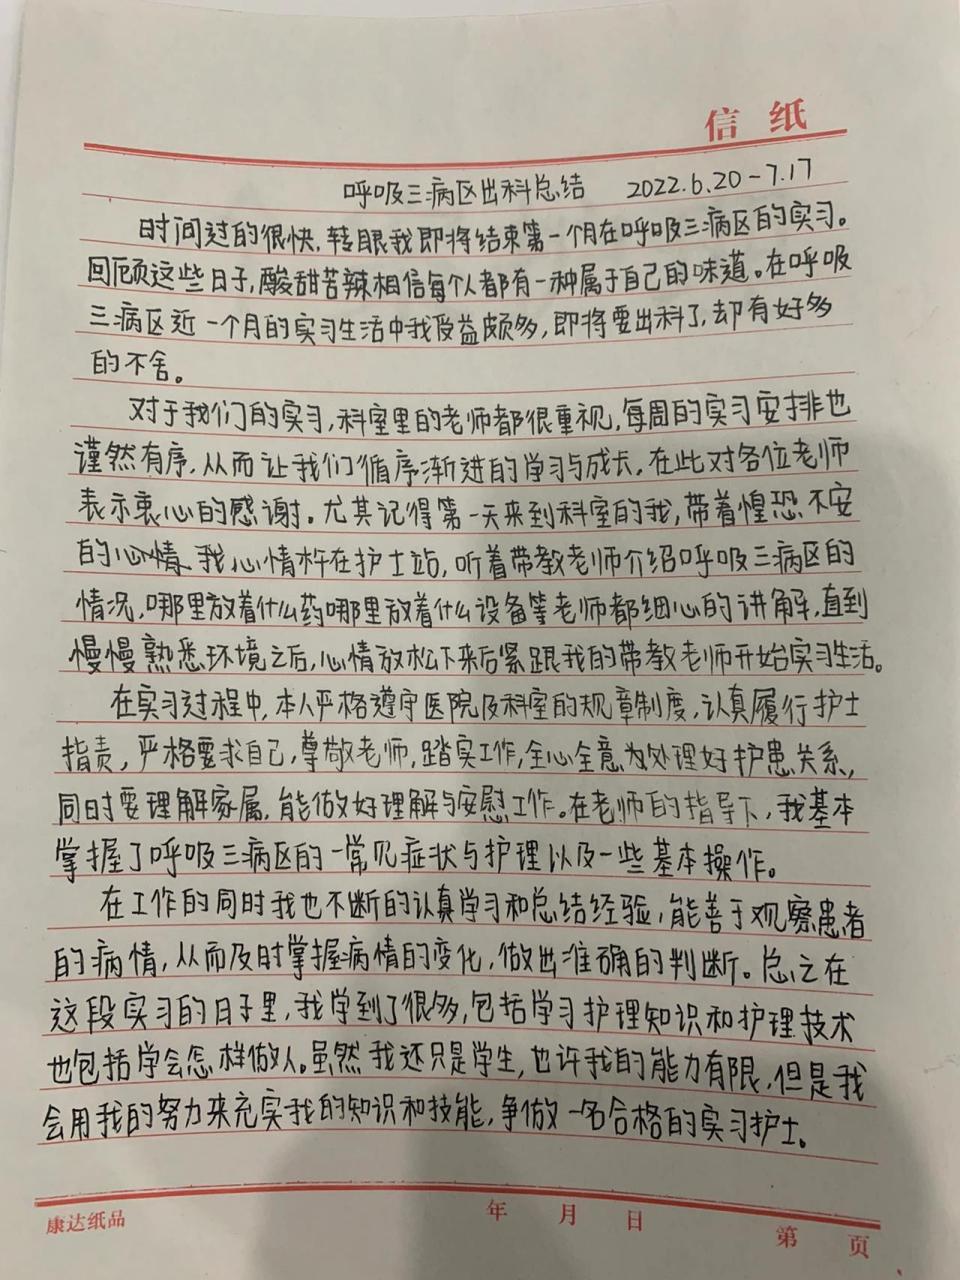 信纸
呼吸三病区出科总结 2022.6.20-7.17
时间过的很快,转眼我即将结束第一个月在呼吸三病区的实习。
回顾这些日子,酸甜苦辣相信每个人都有一种属于自己的味道。在呼吸
三病区近一个月的实习生活中我受益颇多,即将要出科了,却有好多
的不舍。
对于我们的实习,科室里的老师都很重视,每周的实习安排也
谨然有序,从而让我们循序渐进的学习与成长,在此对各位老师
表示衷心的感谢。尤其记得第一天来到科室的我,带着惶恐不安
的心情,我心情杵在护士站,听着带教老师介绍呼吸三病区的
情况,哪里放着什么药哪里放着什么设备等老师都细心的讲解,直到
慢慢熟悉环境之后,心情放松下来后紧跟我的带教老师开始实习生活。
在实习过程中,本人严格遵守医院及科室的规章制度,认真履行护士
指责,严格要求自己,尊敬老师,踏实工作,全心全意为处理好护患关系,
同时要理解家属,能做好理解与安慰工作。在老师的指导下,我基本
掌握了呼吸三病区的一常见症状与护理以及一些基本操作。
在工作的同时我也不断的认真学习和总结经验,能善于观察患者
的病情,从而及时掌握病情的变化,做出准确的判断。总之在
这段实习的日子里,我学到了很多,包括学习护理知识和护理技术
也包括学会怎样做人。虽然我还只是学生,也许我的能力有限,但是我
会用我的努力来充实我的知识和技能,争做一名合格的实习护士。
康达纸品 年 月 日
第 页